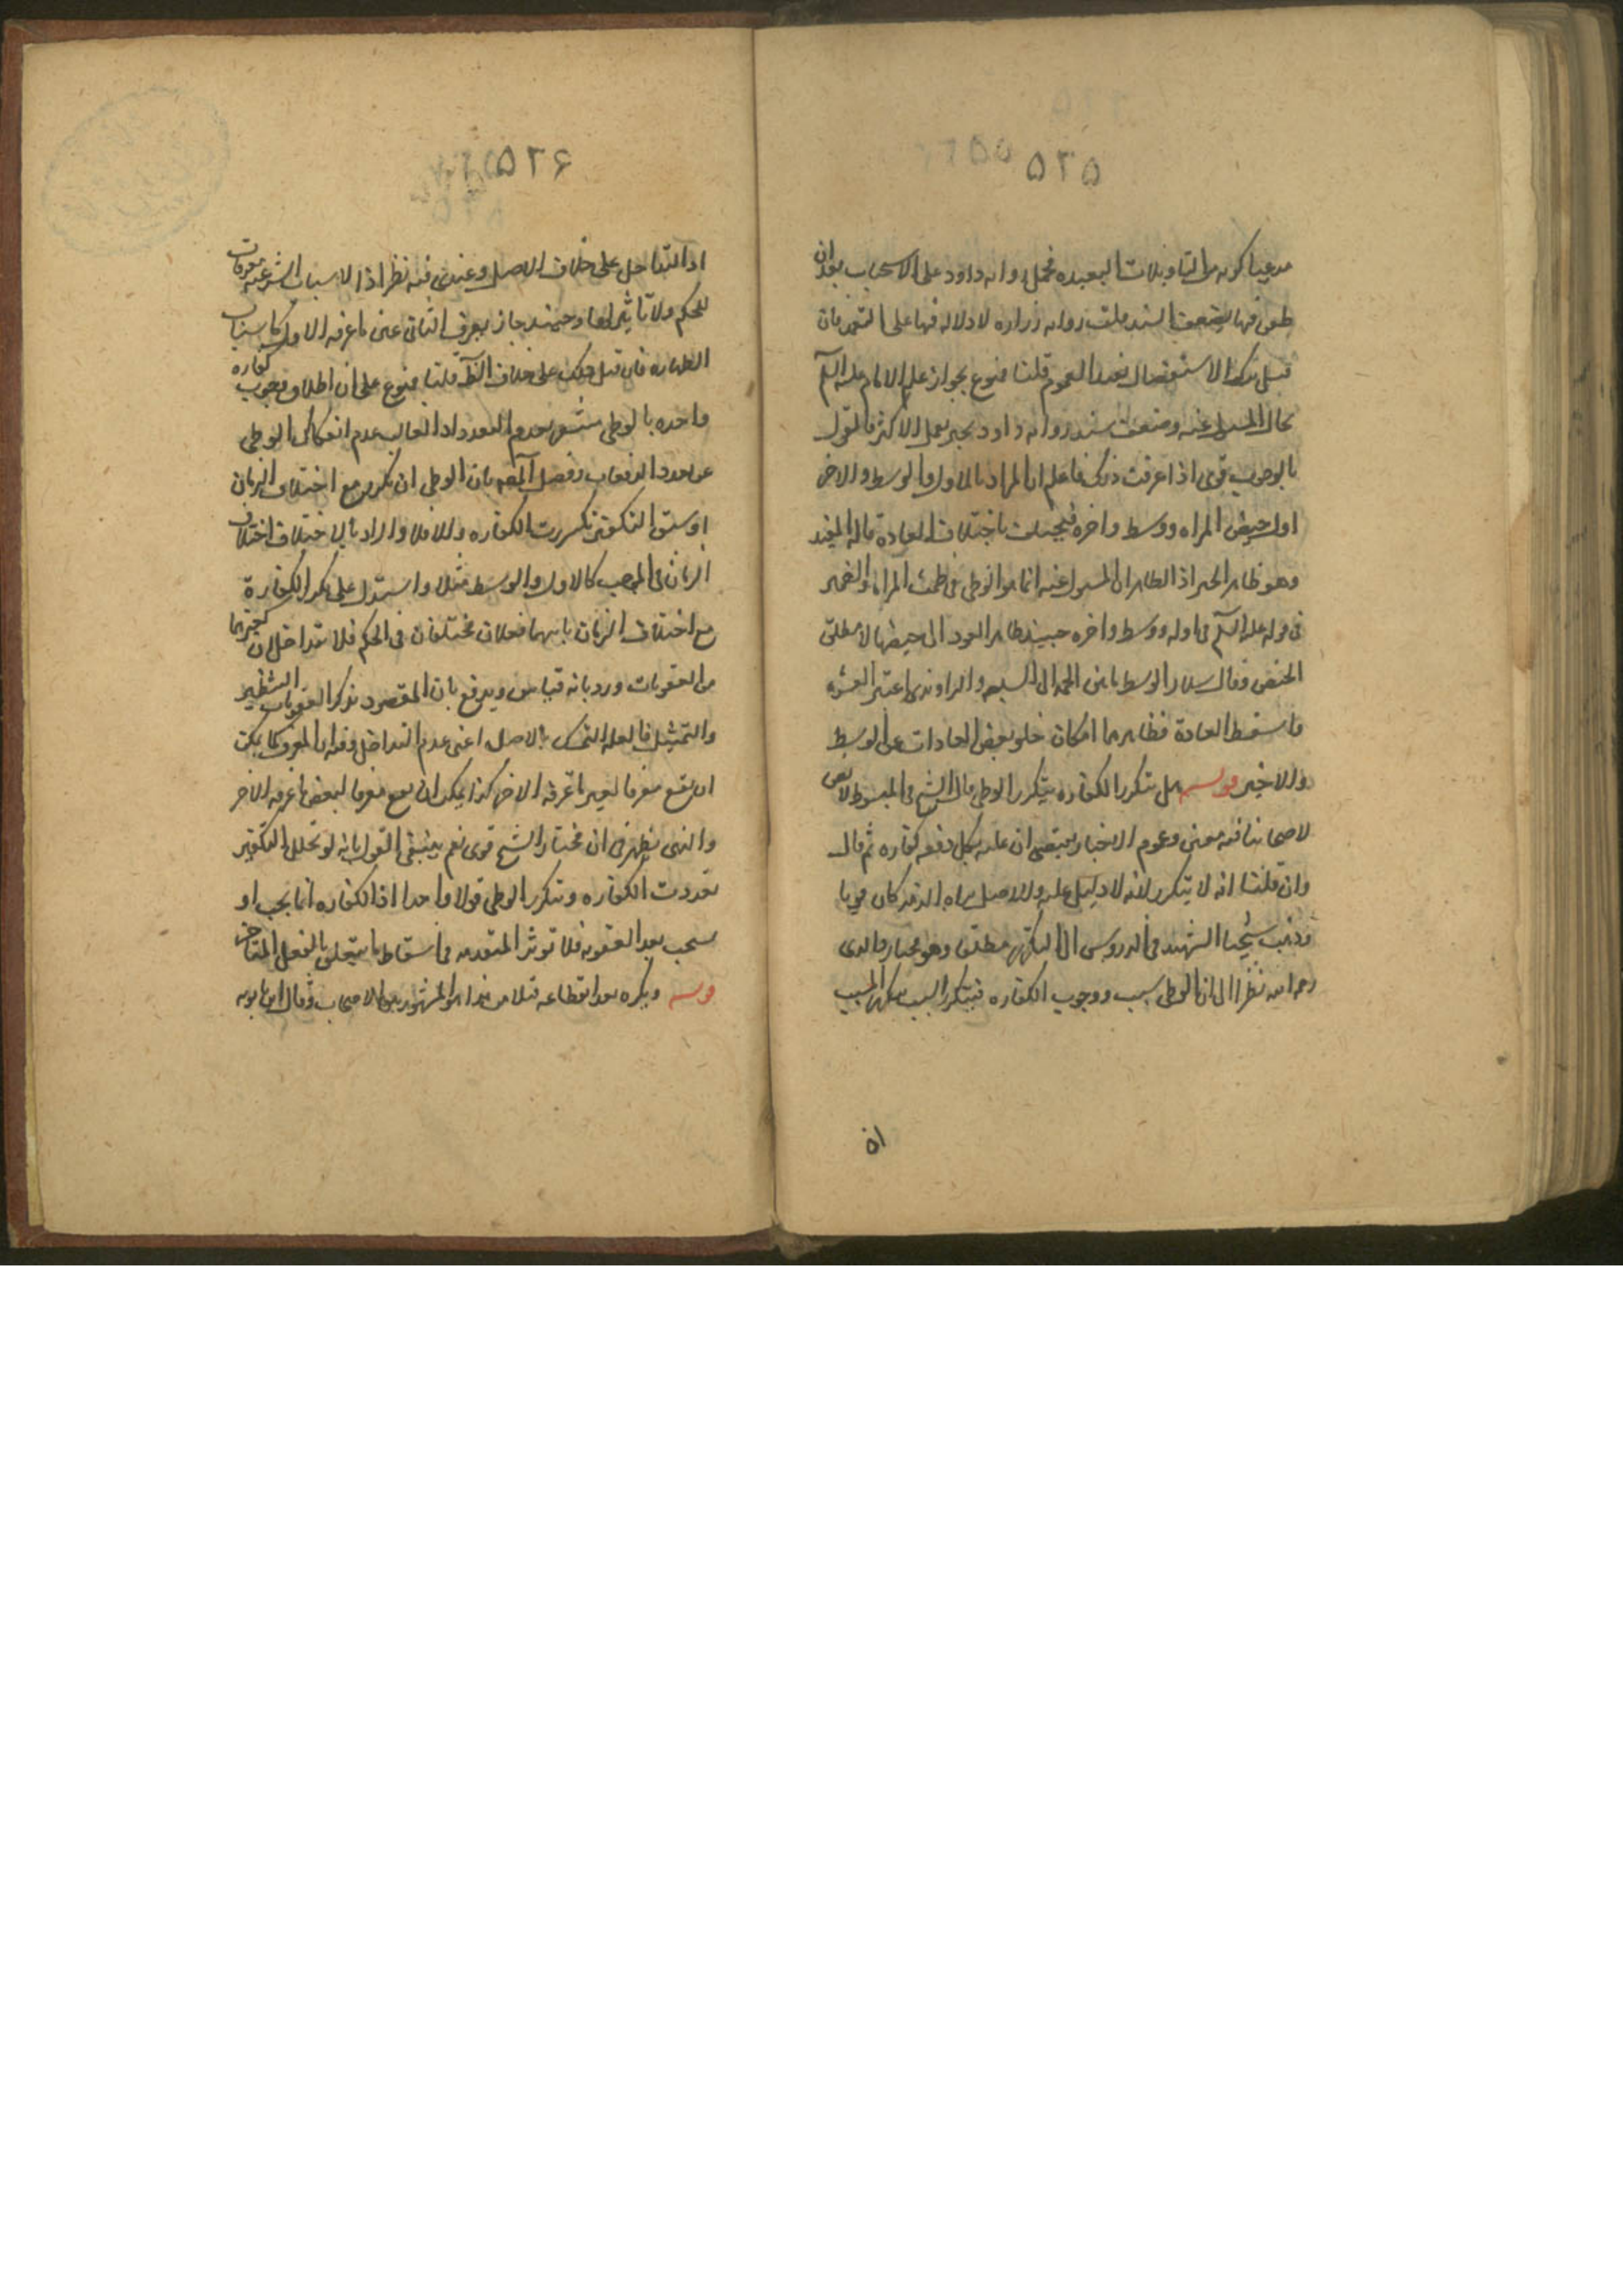 ٥٢٥
مدعيا كونه من التاويلات البعيده فحمل روايه داود على الاستحباب بعد ان
طعن فيها بضعف السند قلت روايه زراره لا دلاله فيها على التعميم فان
قيل ترك الاستفصال يفيد العموم قلنا ممنوع بجواز علم الامام عليه السلم
بحال المسول عنه وضعف سند روايه داود بجبر بعمل الاكثر فالقول
بالوجوب قوى اذا عرفت ذلك فاعلم ان المراد بالاول والوسط والاخر
اول حيض المراه ووسطه واخره فيختلف باختلاف العادة قاله المفيد
وهو ظاهر الخبر اذ الظاهر ان المسول عنه انما هو الوطى فى طمث المراه والضمير
فى قوله عليه السلم فى اوله ووسطه واخره حينئذ ظاهر العود الى حيضها لا مطلق
الحيض وقال سلار الوسط ما بين الخمسه الى السبعه والراوندى اعتبر العشره
واسقط العادة فظاهرهما امكان خلو بعض العادات عن الوسط
والاخير هل تتكرر الكفاره بتكرر الوطى قال الشيخ فى المبسوط لا نص
لاصحابنا فيه معين وعموم الاخبار يقتضى ان عليه بكل دفعه كفاره ثم قال
وان قلنا انه لا يتكرر لانه لا دليل عليه والاصل براه الذمه كان قويا
وذهب شيخنا الشهيد فى الدروس الى التكرر مطلقا وهو مختار والدى
رحمه الله نظرا الى ان الوطى سبب ووجوب الكفاره فيتكرر السبب بتكرر المسبب
اذ
٥٢۶
اذ التداخل على خلاف الاصل وعندى فيه نظر اذ الاسباب الشرعيه معرفات
للحكم ولا تاثير لها وحينئذ جاز بعرف الثانى عين ما عرفه الاول كاسباب
الطهاره فان قيل ذلك على خلاف الظ قلنا ممنوع على ان اطلاق وجوب كفاره
واحده بالوطى مشعر بعدم التعدد اذ الغالب عدم انفكاك الوطى
عن تعدد الدفعات وفصل المص بان الوطى ان تكرر مع اختلاف الزمان
او سبق التكفير تكررت الكفاره والا فلا والمراد بالاختلاف اختلاف
الزمان فى الموجب كالاول والوسط مثلا واستدل على تكرر الكفارة
مع اختلاف الزمان بانهما فعلان مختلفان فى الحكم فلا تتداخل ان كغيرهما
من العقوبات ورد بانه قياس ويدفع بان المقصود بذكر العقوبات التنظير
والتمثيل فالعله التمسك بالاصل اعنى عدم التداخل وفيه ان المعرف كما يمكن
ان يقع معرفا لغير ما عرفه الاخر كذا يمكن ان يقع معرفا لبعض ما عرفه الاخر
والذى يظهر لى ان مختار الشيخ قوى نعم ينبغى القول بانه لو تخلل التكفير
تعددت الكفاره وتكرر الوطى قولا واحدا اذ الكفاره انما يجب او
يستحب بعد العقوبه فلا تؤثر المتقدمه فى اسقاط ما يتعلق بالفعل المتاخر
ويكره بعد انقطاعه قبل الغسل هذا هو المشهور بين الاصحاب وقال ابن بابويه